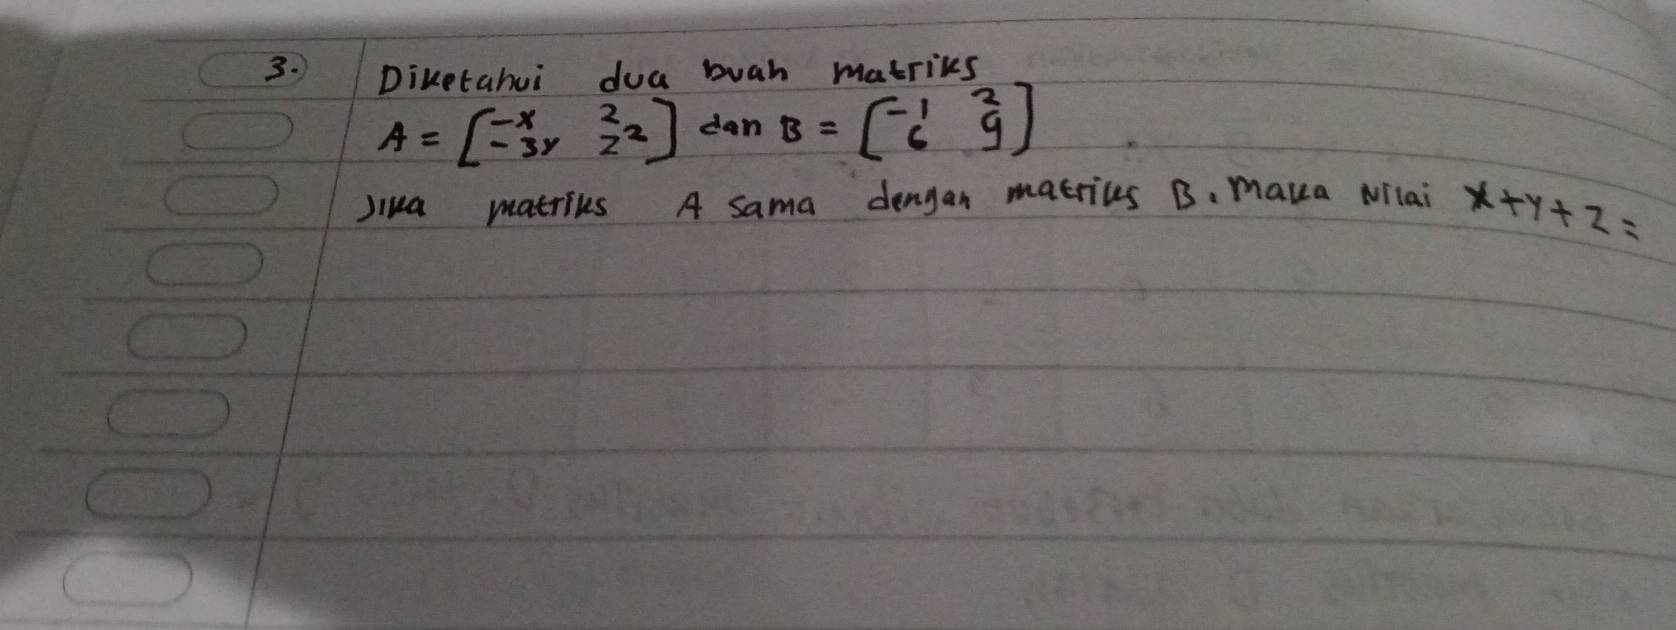 3. Diketahui dua buah matriks
A = [-x 2 -3y z²] dan B = [-1 2 6 9]
Jika matriks A sama dengan matriks B. Maka Nilai x+y+z=